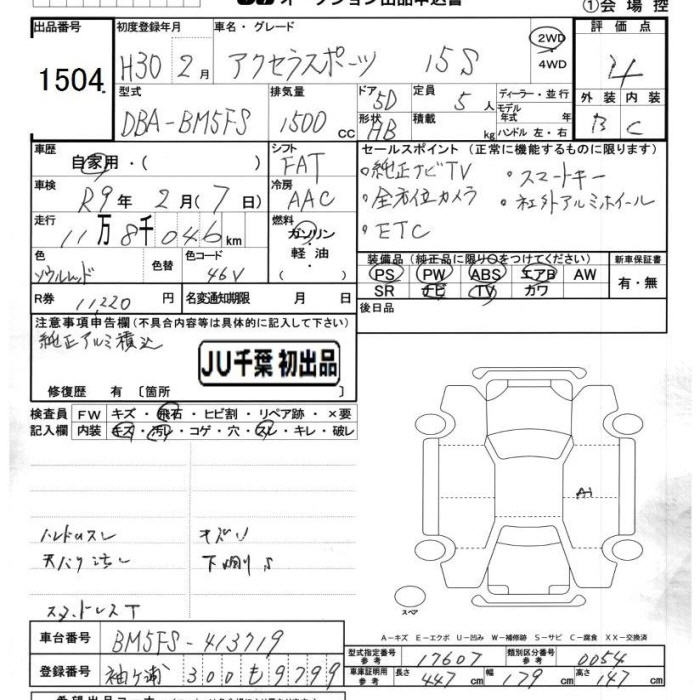 オークション出品申込書
①会場控
出品番号
1504
初度登録年月
H30 2月
車名・グレード
アクセラスポーツ 15S
2WD
4WD
評価点
4
型式
DBA-BM5FS
排気量
1500 cc
ドア 5D
形状 HB
定員 5人
積載 kg
ディーラー・並行
モデル年式 年
ハンドル 左・右
外装 内装
B C
車歴
自家用・( )
シフト
FAT
セールスポイント (正常に機能するものに限ります)
・純正ナビTV ・スマートキー
・全方位カメラ ・社外アルミホイール
・ETC
車検
R9年 2月(7日)
冷房
AAC
走行
11万8千046km
燃料
ガソリン
軽油
・( )
色
ソウルレッド
色替
色コード
46V
装備品 (純正品に限り○をつけてください)
PS PW ABS エアB AW
SR ナビ TV カワ
新車保証書
有・無
R券 11,220円
名変通知期限 月 日
後日品
注意事項申告欄(不具合内容等は具体的に記入して下さい)
純正アルミ積込
JU千葉 初出品
修復歴 有 〔箇所 〕
検査員 FW キズ・飛石・ヒビ割・リペア跡・×要
記入欄 内装 キズ・汚レ・コゲ・穴・スレ・キレ・破レ
ハンドルスレ キズリ
天バリ汚レ 下廻りS
スタッドレスT
A1
スペア
A-キズ E-エクボ U-凹み W-補修跡 S-サビ C-腐食 XX-交換済
車台番号
BM5FS-413719
型式指定番号 参考 17607
類別区分番号 参考 0054
登録番号
袖ヶ浦 300 も 9799
車庫証明用 参考 長さ 447cm 幅 179cm 高さ 147cm